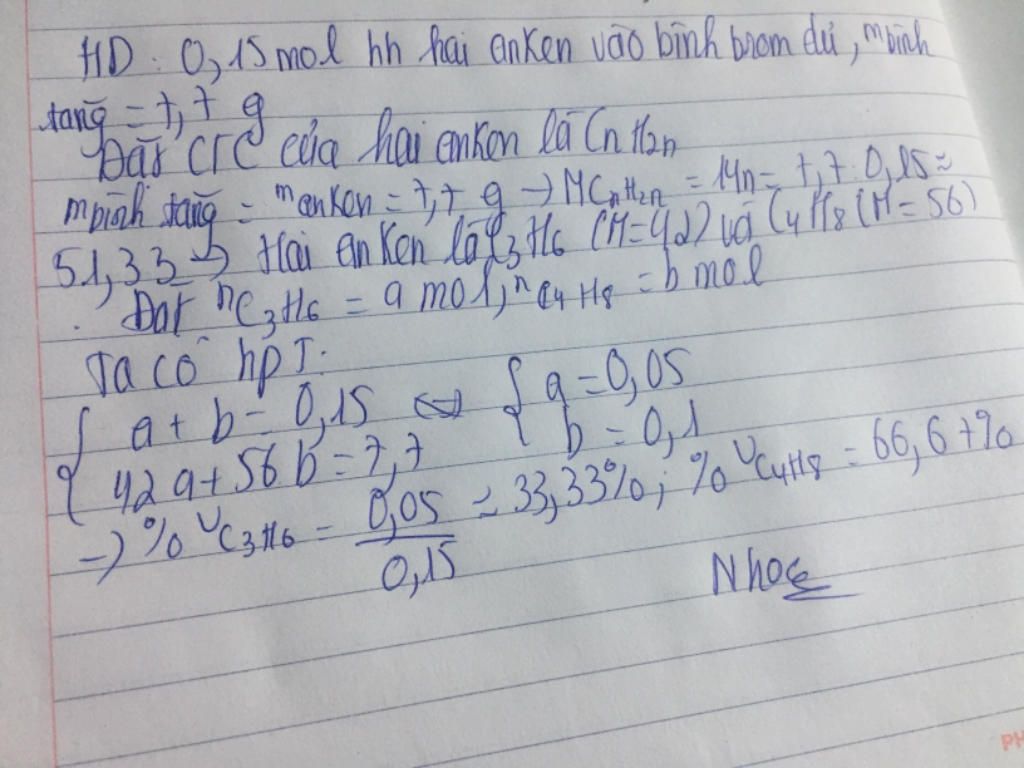 HD: 0,15 mol hh hai anken vào bình brom dư, m bình
tăng = 7,7 g
Đặt CTC của hai anken là CnH2n
m bình tăng = m anken = 7,7 g → MCnH2n = 14n = 7,7 : 0,15 ≈
51,33 → Hai anken là C3H6 (M=42) và C4H8 (M=56)
Đặt nC3H6 = a mol, nC4H8 = b mol
Ta có hpT:
{ a + b = 0,15 ⇔ { a = 0,05
42a + 56b = 7,7 b = 0,1
→ % VC3H6 = 0,05 / 0,15 = 33,33%; % VC4H8 = 66,67%
PH